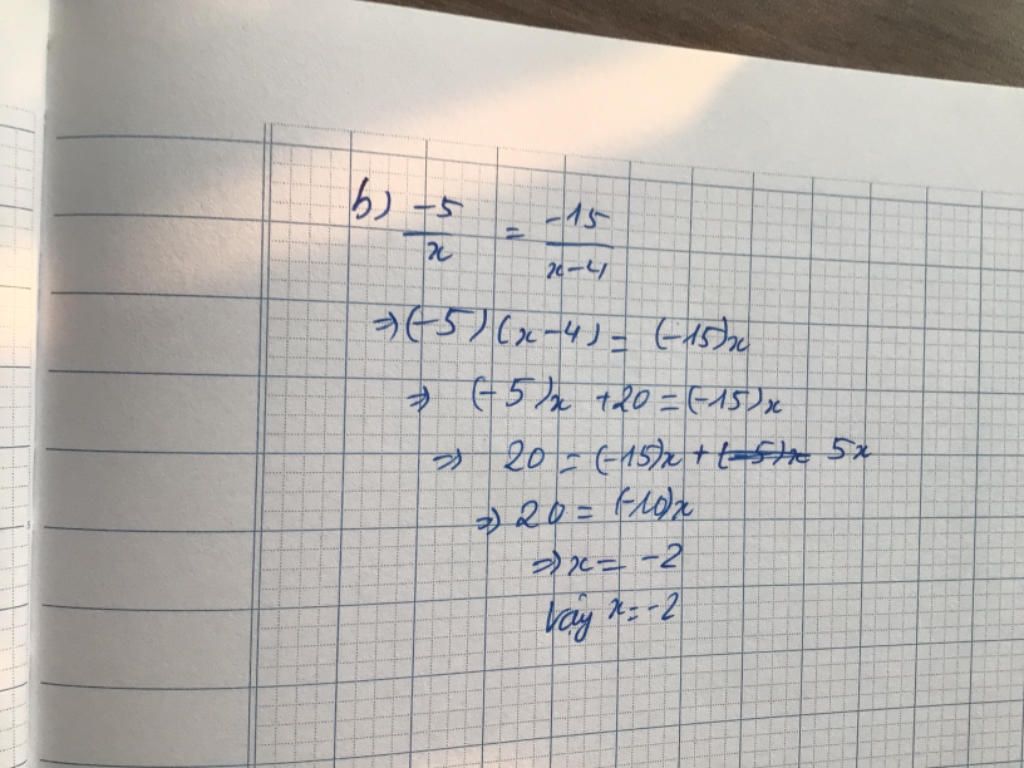 b) -5/x = -15/x-4
⇒ (-5)(x-4) = (-15)x
⇒ (-5)x +20 = (-15)x
⇒ 20 = (-15)x + (-5)x 5x
⇒ 20 = (-10)x
⇒ x = -2
Vậy x = -2